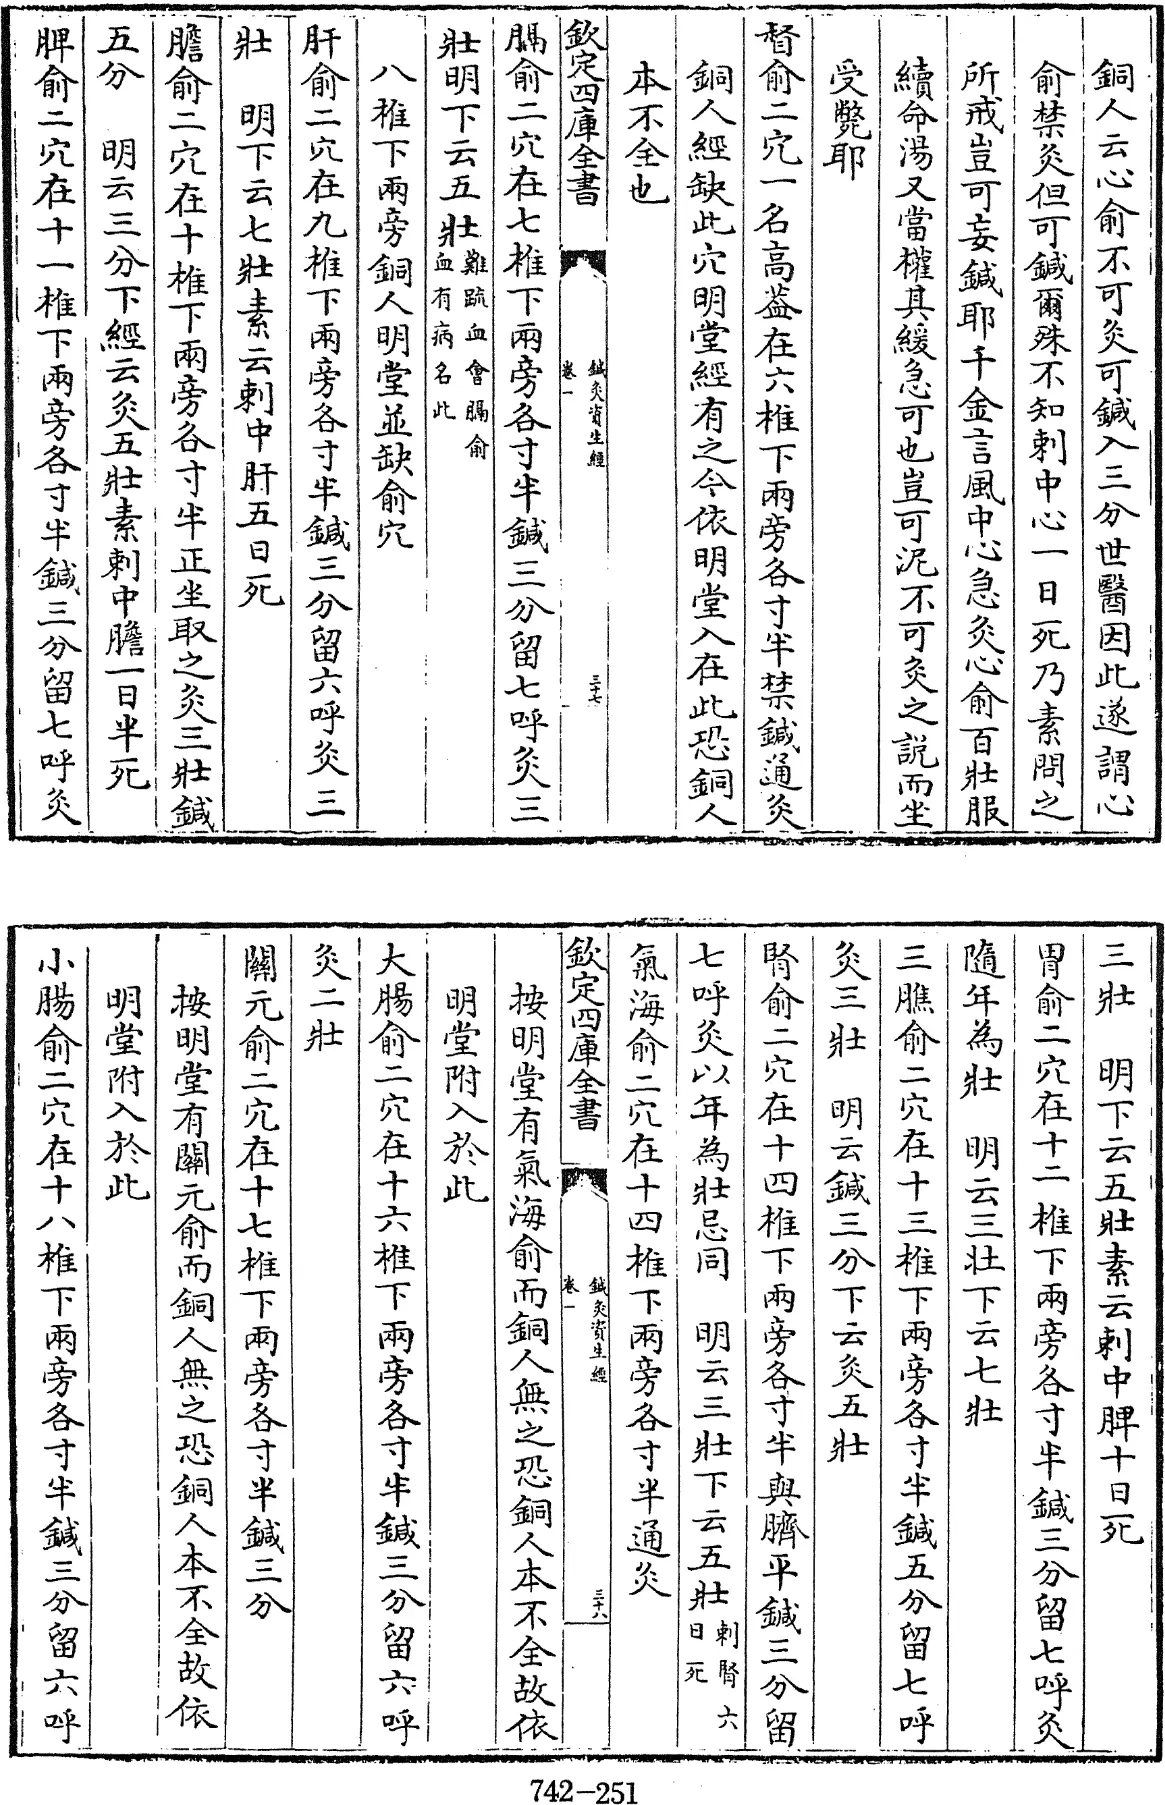 銅人云心俞不可灸可鍼入三分世醫因此遂謂心
俞禁灸但可鍼爾殊不知刺中心一日死乃素問之
所戒豈可妄鍼耶千金言風中心急灸心俞百壯服
續命湯又當權其緩急可也豈可泥不可灸之説而坐
受斃耶
督俞二穴一名高葢在六椎下兩旁各寸半禁鍼通灸
銅人經缺此穴明堂經有之今依明堂入在此恐銅人
本不全也
欽定四庫全書
鍼灸資生經
卷一
三十七
膈俞二穴在七椎下兩旁各寸半鍼三分留七呼灸三
壯明下云五壯難疏血會膈俞
血有病名此
八椎下兩旁銅人明堂並缺俞穴
肝俞二穴在九椎下兩旁各寸半鍼三分留六呼灸三
壯　明下云七壯素云刺中肝五日死
膽俞二穴在十椎下兩旁各寸半正坐取之灸三壯鍼
五分　明云三分下經云灸五壯素刺中膽一日半死
脾俞二穴在十一椎下兩旁各寸半鍼三分留七呼灸
三壯　明下云五壯素云刺中脾十日死
胃俞二穴在十二椎下兩旁各寸半鍼三分留七呼灸
隨年為壯　明云三壯下云七壯
三膲俞二穴在十三椎下兩旁各寸半鍼五分留七呼
灸三壯　明云鍼三分下云灸五壯
腎俞二穴在十四椎下兩旁各寸半與臍平鍼三分留
七呼灸以年為壯忌同　明云三壯下云五壯刺腎六
日死
氣海俞二穴在十四椎下兩旁各寸半通灸
欽定四庫全書
鍼灸資生經
卷一
三十八
按明堂有氣海俞而銅人無之恐銅人本不全故依
明堂附入於此
大腸俞二穴在十六椎下兩旁各寸半鍼三分留六呼
灸二壯
關元俞二穴在十七椎下兩旁各寸半鍼三分
按明堂有關元俞而銅人無之恐銅人本不全故依
明堂附入於此
小腸俞二穴在十八椎下兩旁各寸半鍼三分留六呼
742-251